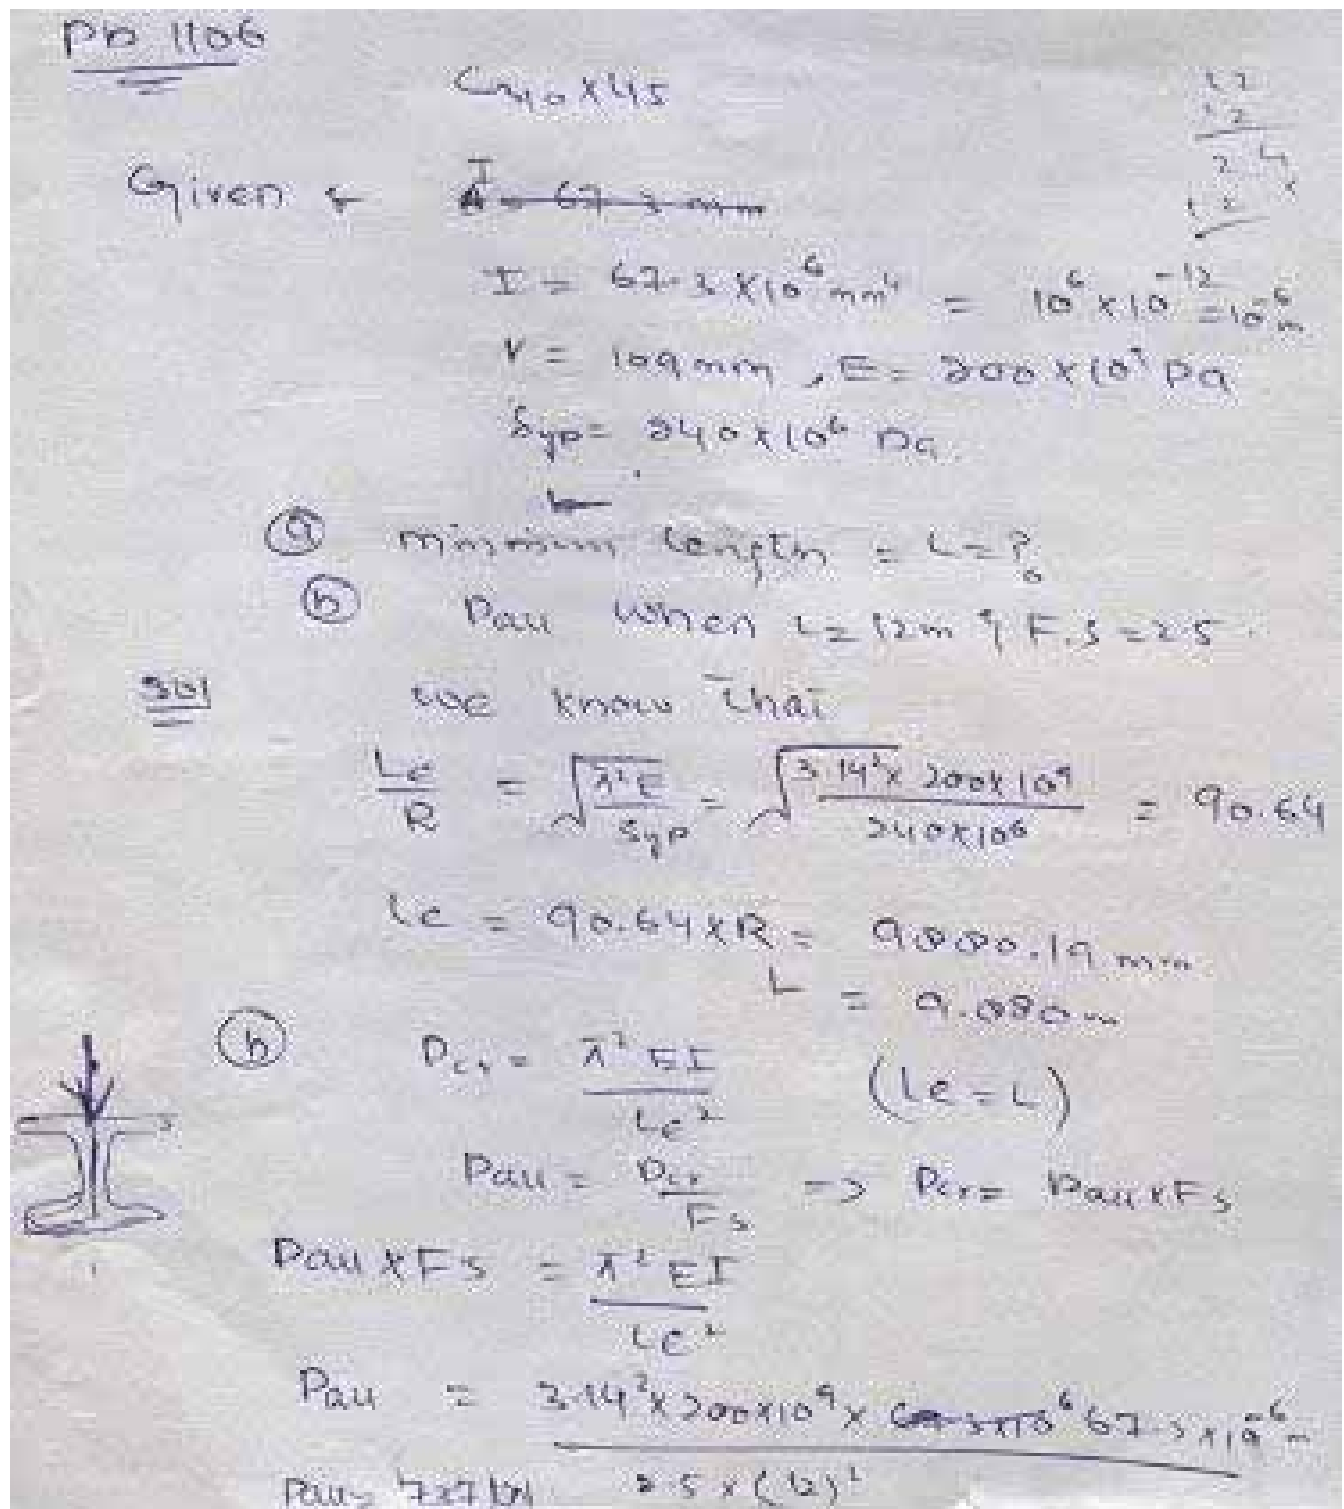 Pb 1106
C310 x 45
12
12
24
12x
Given
I = 67.3 x 10⁶ mm⁴ = 10⁶ x 10⁻¹² = 10⁻⁶ m
r = 109 mm, E = 200 x 10⁹ Pa
Syp = 240 x 10⁶ Pa.
(a) Minimum length = L = ?
(b) Pall when L = 12m & F.S = 2.5.
Sol we know that
Le/R = √(π²E/Syp) = √(3.14² x 200 x 10⁹/240 x 10⁶) = 90.64
Le = 90.64 x R = mm
L = m
(b) Pcr = π²EI/Le² (Le = L)
Pall = Pcr/Fs => Pcr = Pall x Fs
Pall x Fs = π²EI/Le²
Pall = 3.14² x 200 x 10⁹ x 67.3 x 10⁻⁶ m
Pall = kN 2.5 x (12)²